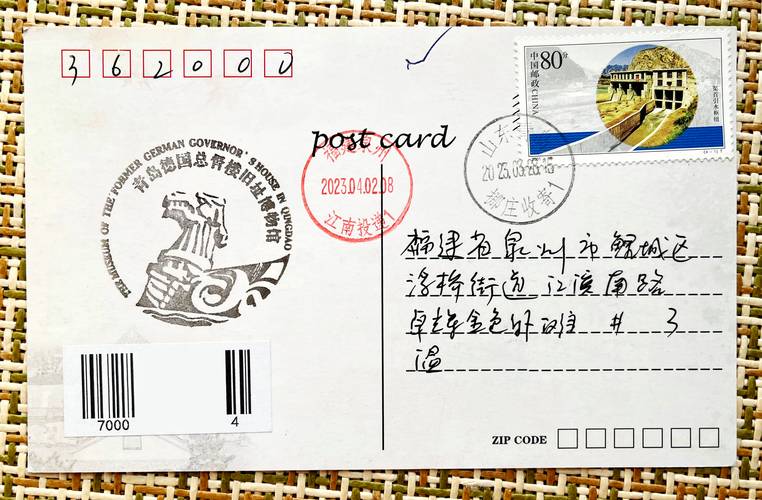 362000
80分
中国邮政 CHINA
post card
THE MUSEUM OF THE FORMER GERMAN GOVERNOR'S HOUSE IN QINGDAO
青岛德国总督楼旧址博物馆
福建泉州
2023.04.02.08
江南投递1
山东
收寄1
福建省泉州市鲤城区
浮桥街道 江滨南路
金色外滩 # 3
温
7000 4
ZIP CODE